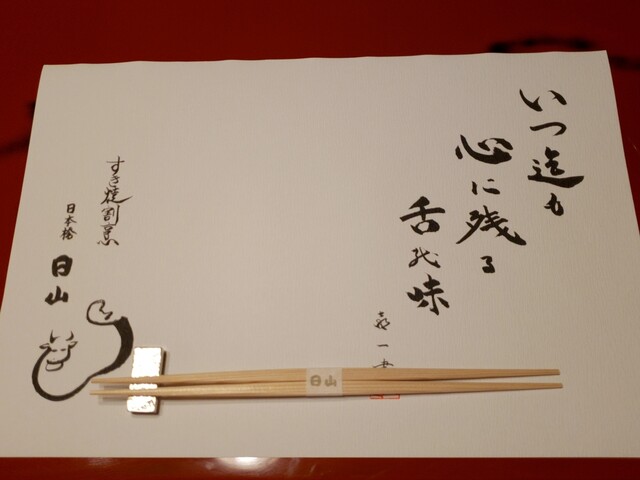 いつ迄も
心に残る
舌の味
喜一書
すき焼割烹
日本橋
日山
日山